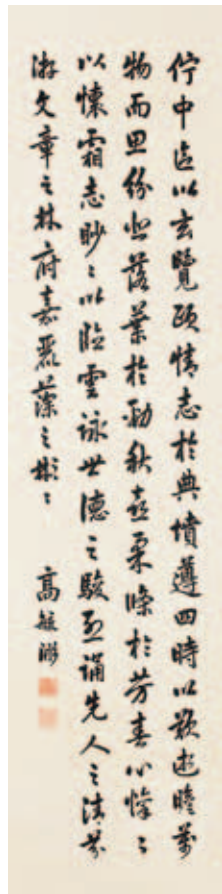 佇中區以玄覽頤情志於典墳遵四時以歎逝瞻萬
物而思紛悲落葉於勁秋喜柔條於芳春心懍〻
以懷霜志眇〻以臨雲詠世德之駿烈誦先人之清芬
游文章之林府嘉麗藻之彬〻 高毓浵